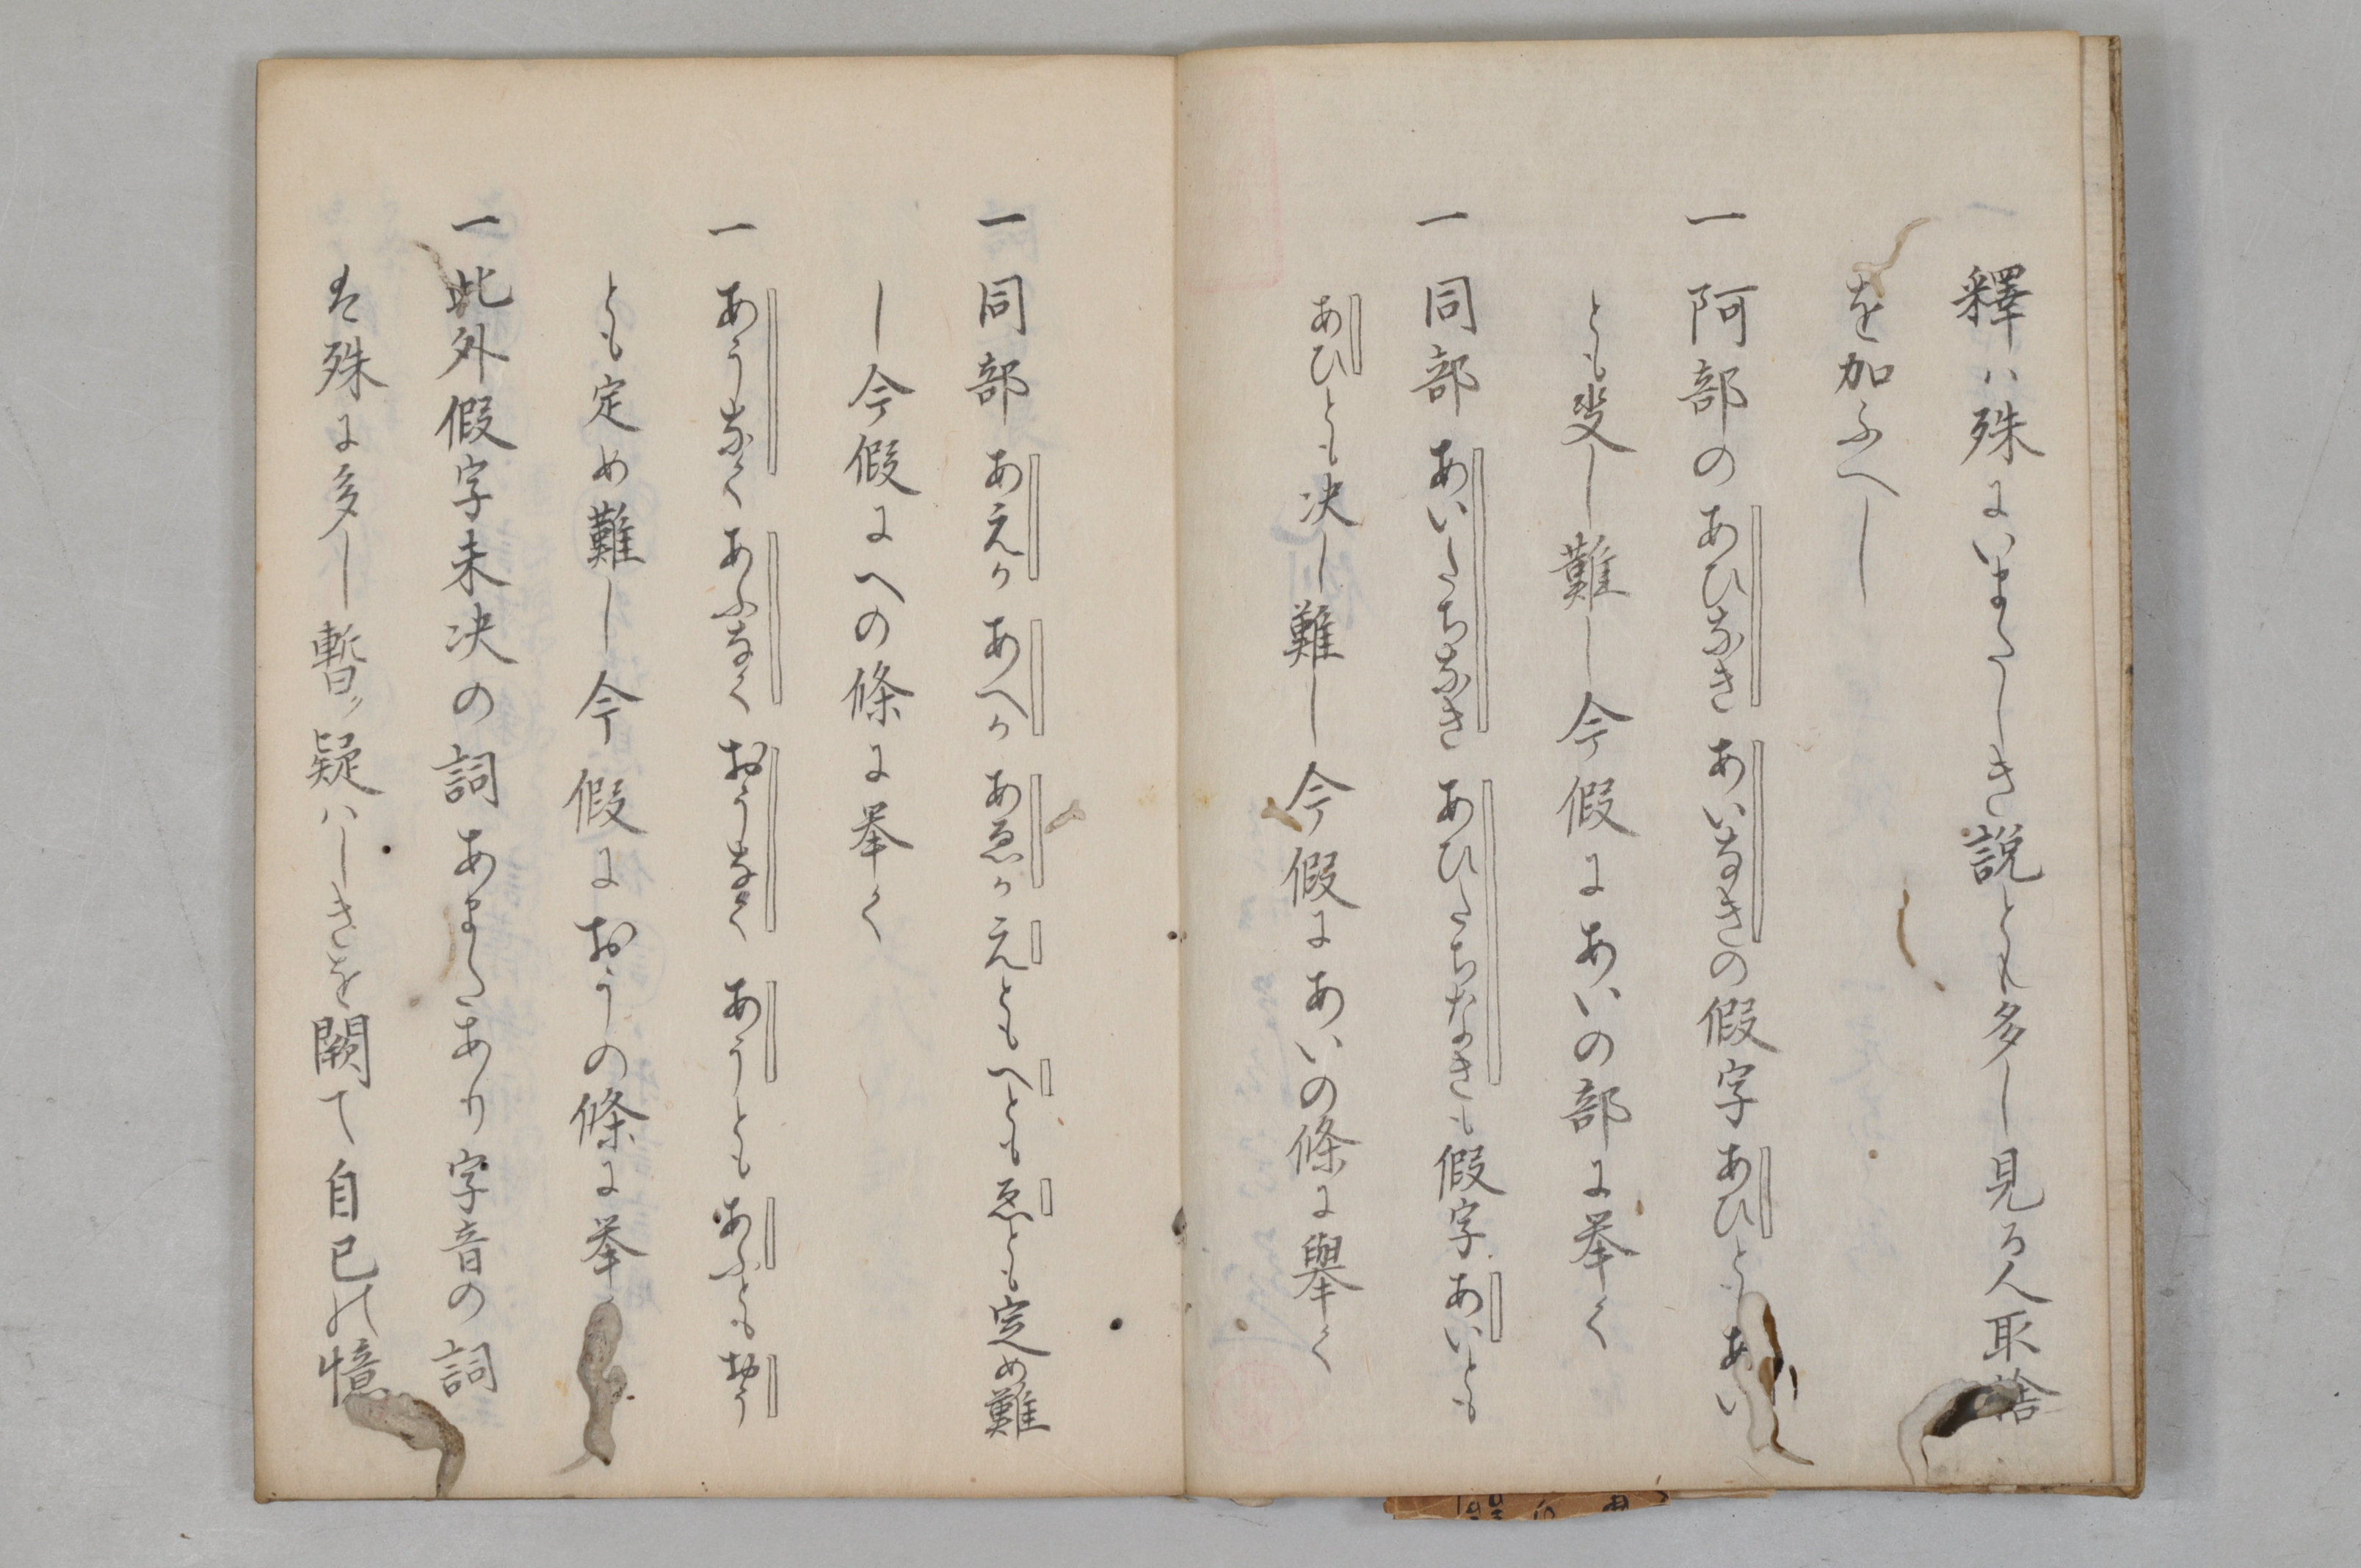 釋ハ殊にいまたしき説とも多し見る人取捨
を加ふへし
一 阿部のあひなきあいなきの假字あひともあい
とも定し難し今假にあいの部に挙く
一 同部あいたちなきあひたちなきも假字あいとも
あひとも决し難し今假にあいの條に舉く
一 同部あえかあへかあゑかえともへともゑとも定め難
し今假にへの條に挙く
一 あうなくあふなくおうなくあうともあふともおう
とも定め難し今假におうの條に挙く
一 此外假字未决の詞あまたあり字音の詞
は殊に多し暫ク疑ハしきを闕て自己の憶